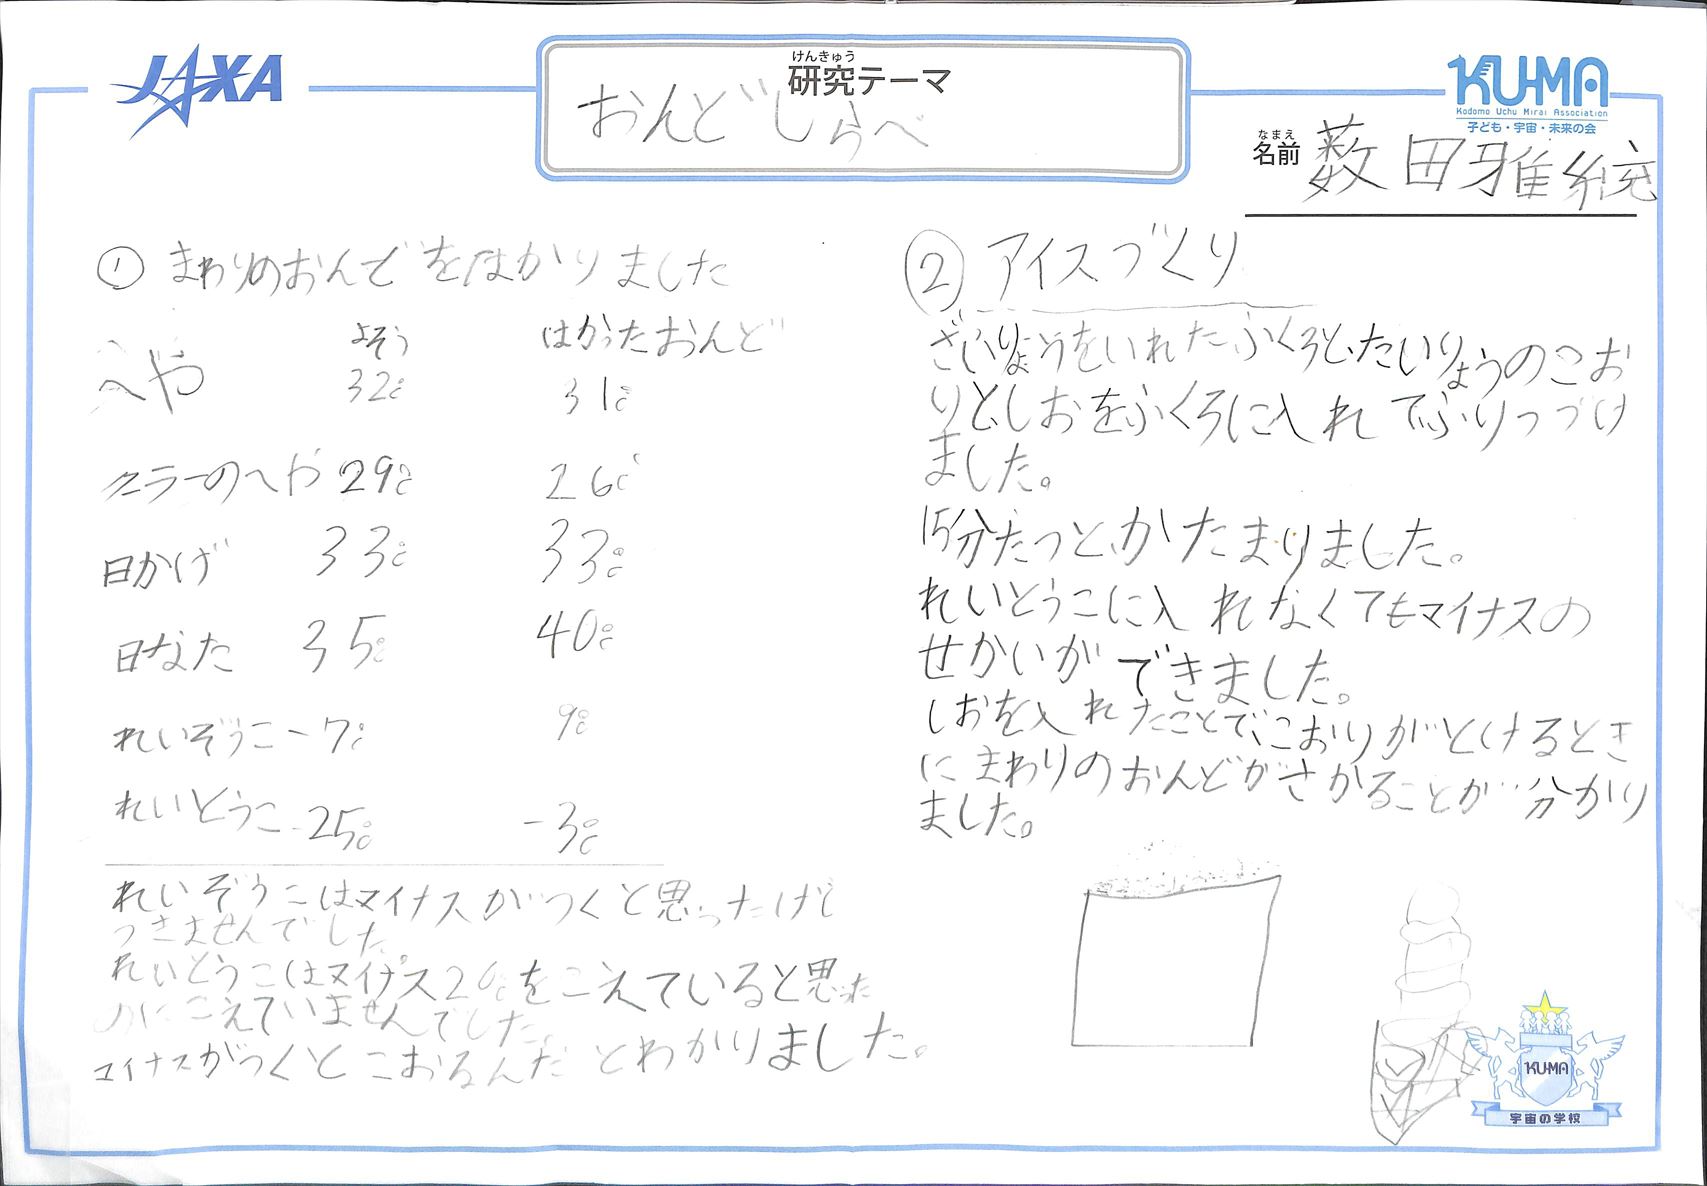 JAXA
けんきゅう
研究テーマ
おんどしらべ
KU-MA
Kodomo Uchu Mirai Association
子ども・宇宙・未来の会
なまえ
名前 薮田雅統
① まわりのおんどをはかりました
よそう はかったおんど
へや 32℃ 31℃
クーラーのへや 29℃ 26℃
日かげ 33℃ 33℃
日なた 35℃ 40℃
れいぞうこ -7℃ 9℃
れいとうこ -25℃ -3℃
れいぞうこはマイナスがつくと思ったけど
つきませんでした
れいとうこはマイナス20℃をこえていると思った
のにこえていませんでした。
マイナスがつくとこおるんだとわかりました。
② アイスづくり
ざいりょうをいれたふくろと、たいりょうのこお
りと、しおをふくろに入れてふりつづけ
ました。
15分たつとかたまりました。
れいとうこに入れなくてもマイナスの
せかいができました。
しおを入れたことで、こおりがとけるとき
にまわりのおんどがさがることが分かり
ました。
KU-MA
宇宙の学校